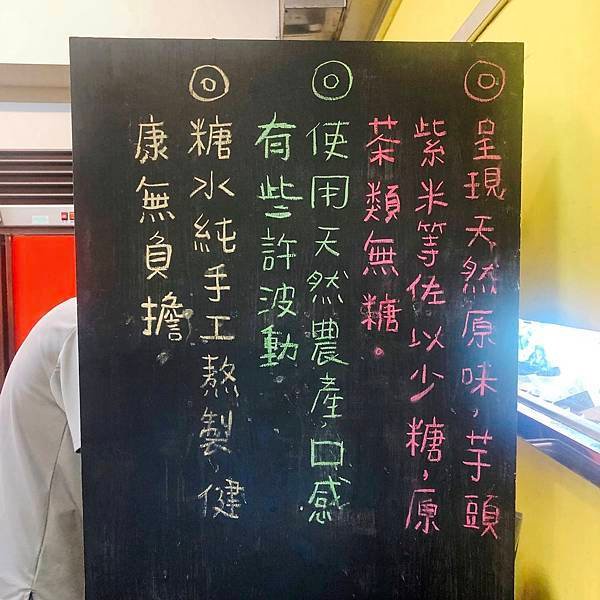 ◎呈現天然原味,芋頭
紫米等佐以少糖,原
茶類無糖。
◎使用天然農產,口感
有些許波動.
◎糖水純手工熬製,健
康無負擔.